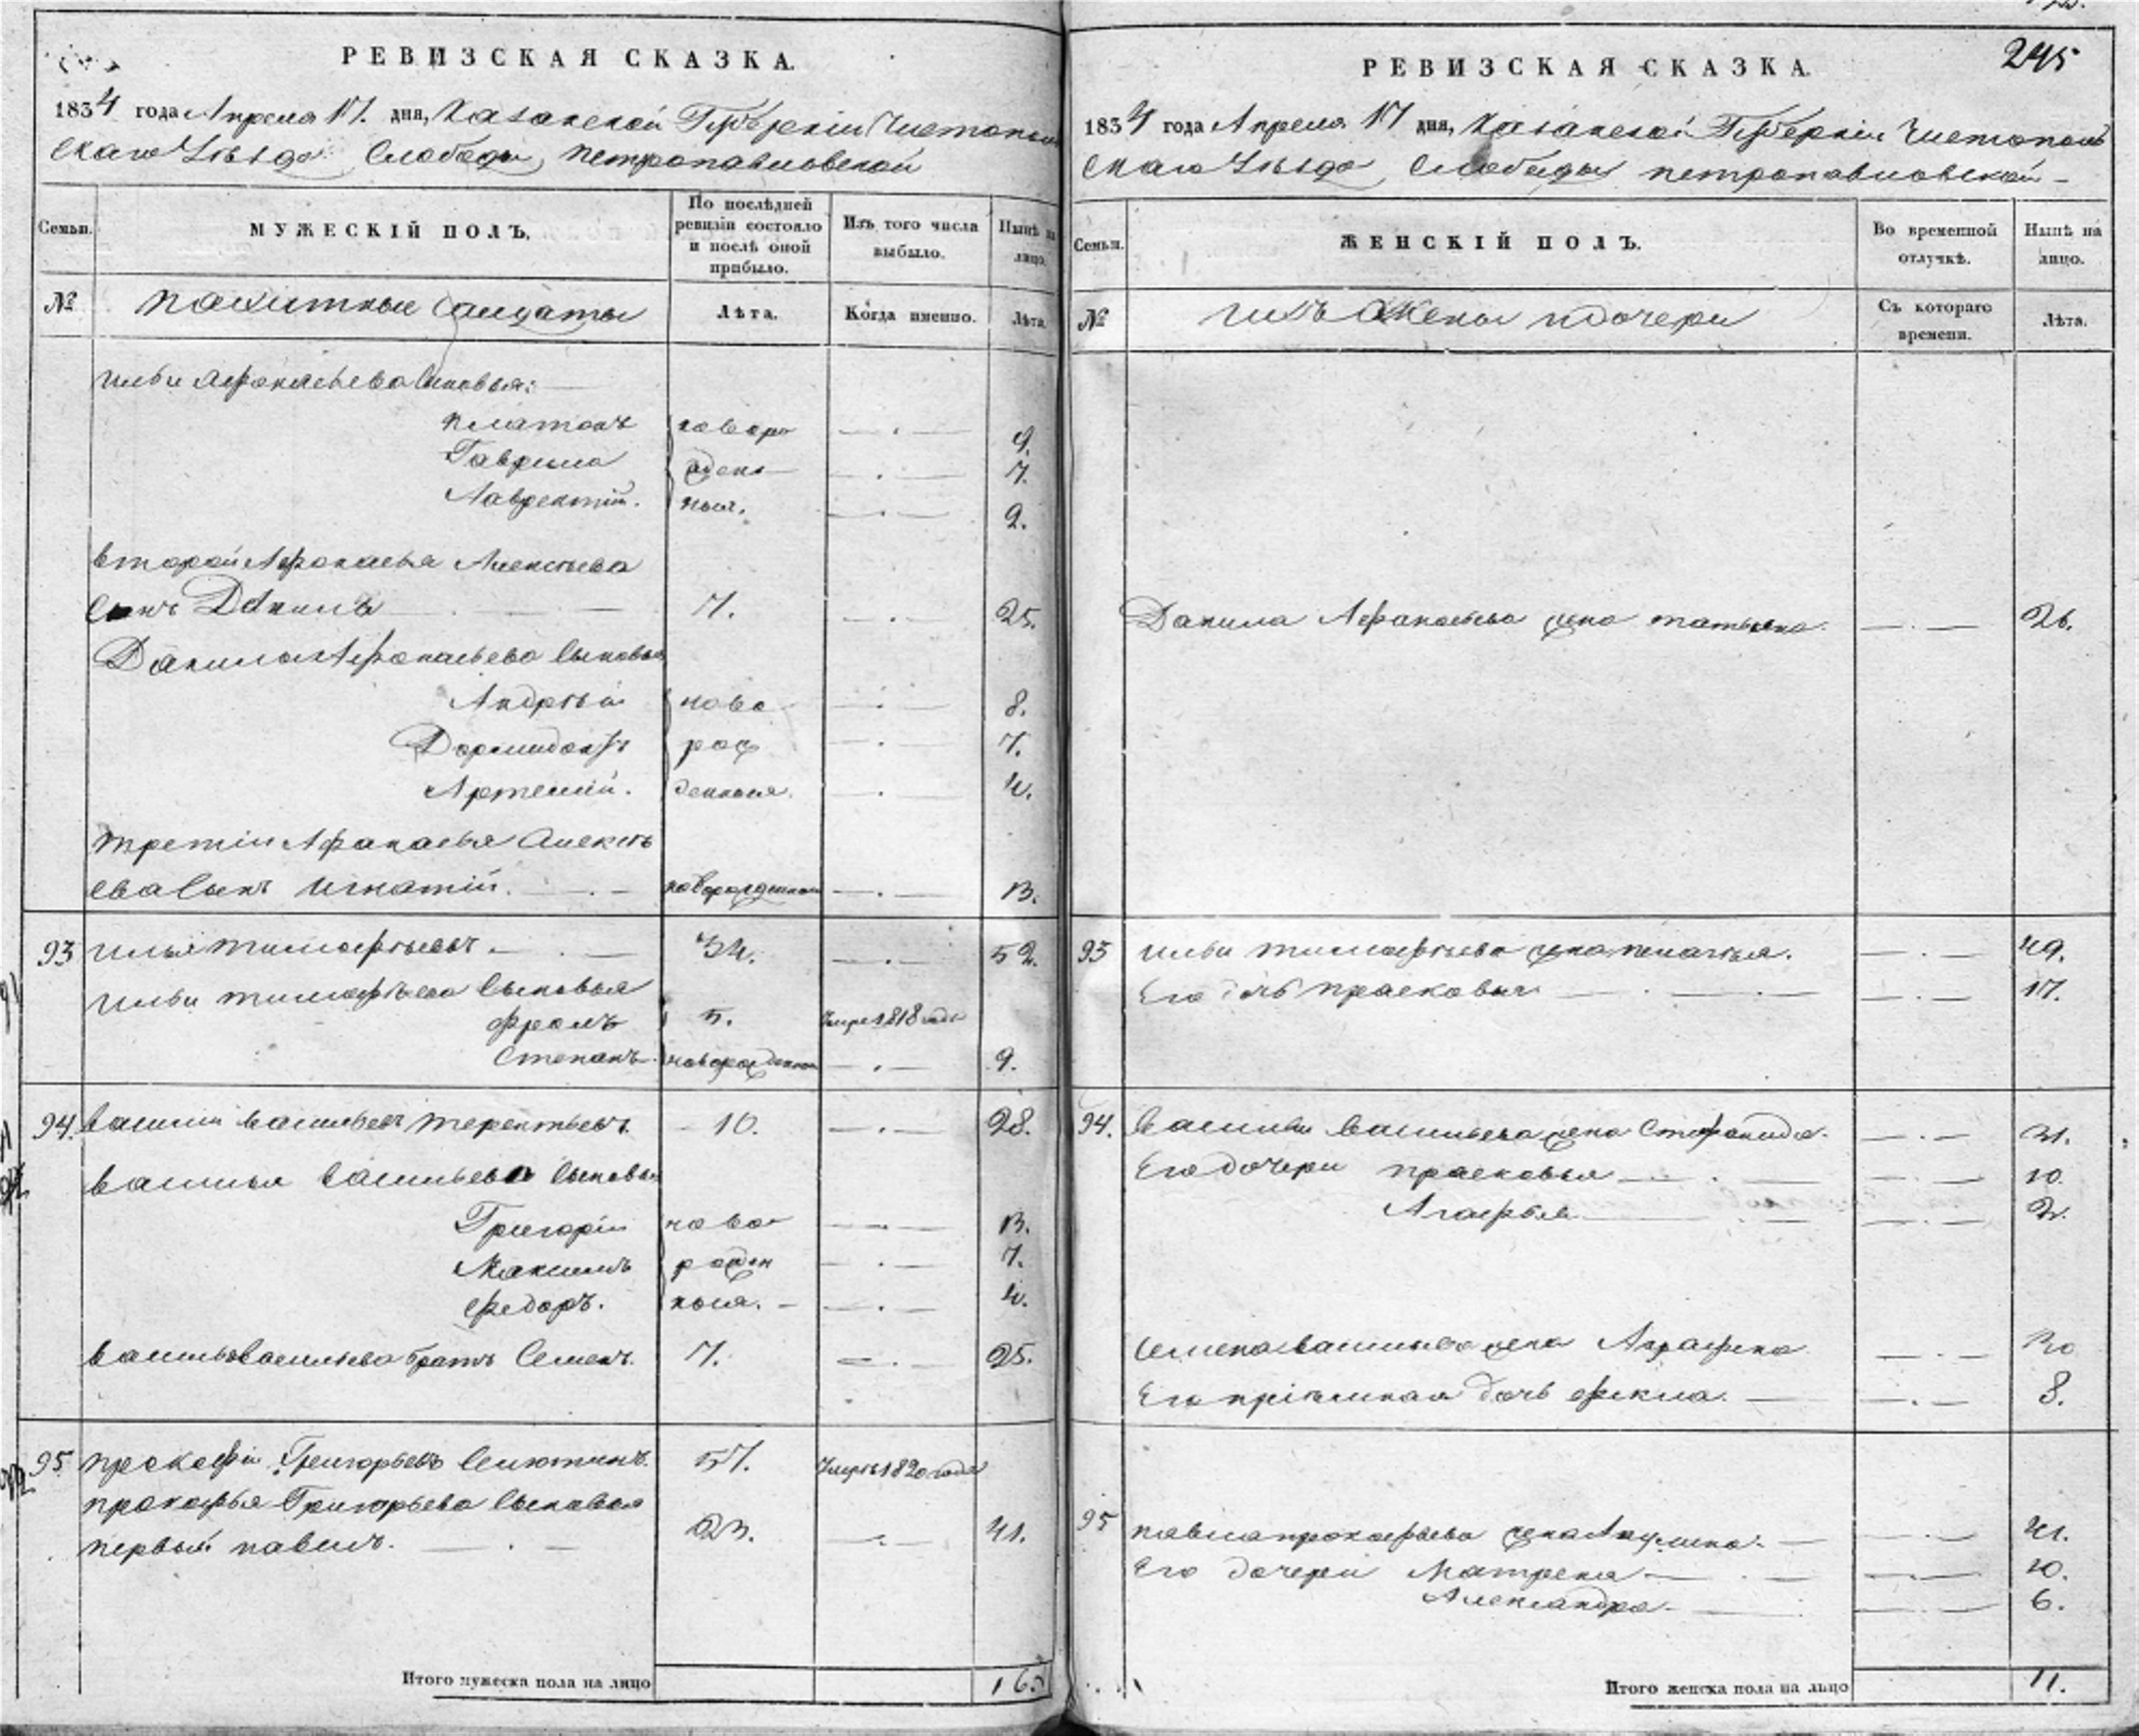 РЕВИЗСКАЯ СКАЗКА.
1834 года Апреля 17. дня, Казанской Губернiи Чистополь
скаго Уѣзда Слободы, петропавловской
Семьи.
МУЖЕСКIЙ ПОЛЪ.
По послѣдней ревизiи состояло и послѣ оной прибыло.
Изъ того числа выбыло.
Нынѣ на лицо.
№
пахитные Салдаты
Лѣта.
Когда именно.
Лѣта.
ильи Афонасьева сыновья:
платонъ новоро 9.
Гаврила ждено 7.
Лаврентiй. ныя. 2.
второй Афонасья Алексѣева
сынъ Данила 7. 25.
Данилы Афонасьева сыновья
Андрѣй ново 8.
Дормидонтъ рож 7.
Артемiй. денныя. 4.
третiй Афанасья Алексѣ
ева сынъ Игнатiй. новорожденной 13.
93 илья тимофѣевъ 34. 52.
ильи тимофѣева сыновья
Фролъ 5. умре 1818 года
Степанъ новорожденной 9.
94. василiй васильевъ терентьевъ 10. 28.
василья васильева сыновья
Григорiй ново 13.
Максимъ рожден 7.
Федоръ. ныя. 4.
василья васильева братъ Семенъ. 7. 25.
95 прокофiй Григорьевъ 57. умре 1820 года
прокофья Григорьева сыновья
первый павелъ. 23. 41.
Итого мужеска пола на лицо 16.
245
РЕВИЗСКАЯ СКАЗКА.
1834 года Апреля 17 дня, Казанской Губернiи Чистополь
скаго Уѣзда, Слободы петропавловской
Семьи.
ЖЕНСКIЙ ПОЛЪ.
Во временной отлучкѣ.
Нынѣ на лицо.
№
ихъ Жены и дочери
Съ котораго времени.
Лѣта.
Данила Афанасьева жена татьяна 26.
93 ильи тимофѣева жена пелагѣя. 49.
Его дочь прасковья 17.
94. Василья васильева жена Стефанида. 31.
Его дочери прасковья 10.
Агафья 2.
семена васильева жена Аграфена 30
Его прiемная дочь фекла. 8.
95 павла прокофьева жена Акулина. 41.
Его дочери Матрена 10.
Александра 6.
Итого женска пола на лицо 11.